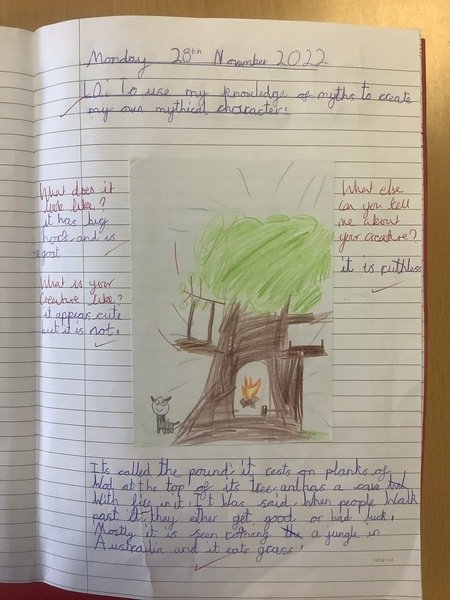 Monday 28th November 2022
LO: To use my knowledge of myths to create
my own mythical character.
What does it
look like?
it has big
horns and is
a goat
What is your
creature like?
it appears cute
but it is not.
What else
can you tell
me about
your creature?
it is ruthless
It's called the pound. it rests on planks of
Wod at the top of its tree. and has a cave
With fire in it. It Was said When people Walk
past it they ether get good or bad luck.
Mostly it is seen a jungle in
Austrailia and it eats grass.